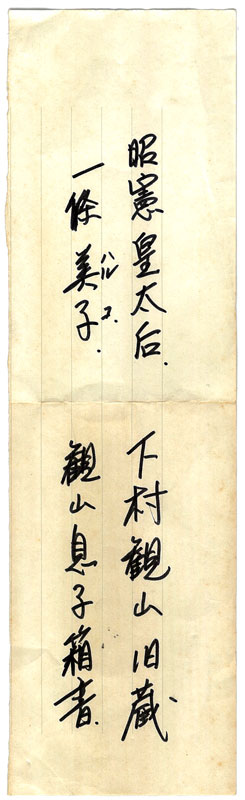 昭憲皇太后.
一條美子.
ハルコ.
下村観山旧蔵
観山息子箱書